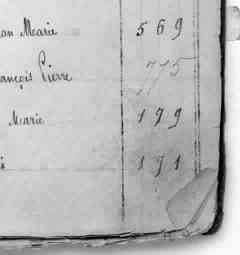 an Marie 569
ançois Pierre 775
Marie 179
171